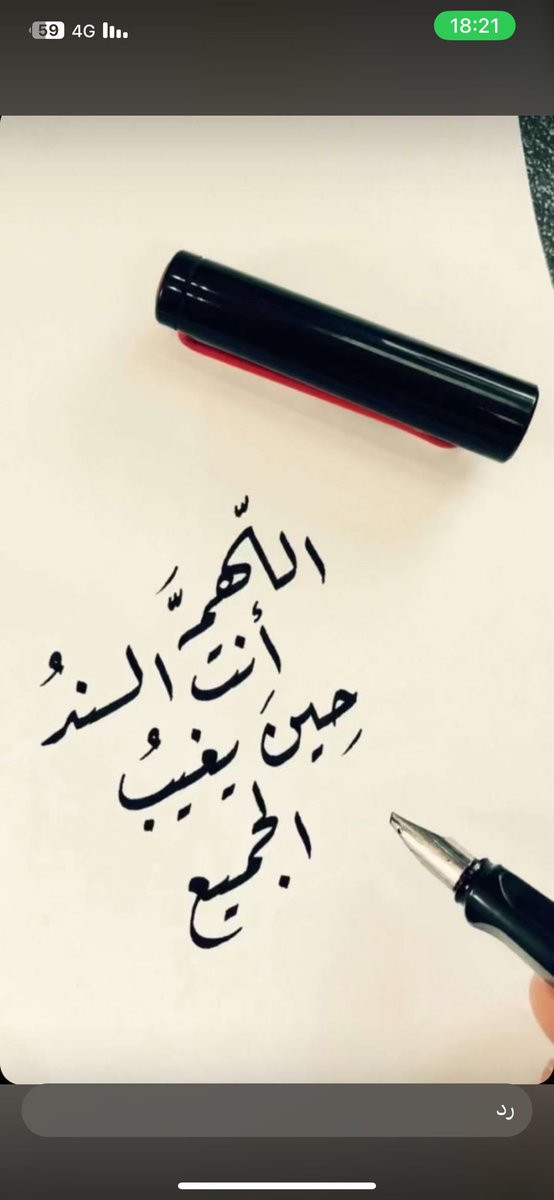 59 4G 18:21
اللّهمَّ
أنت السندُ
حِينَ يغيبُ
الجميع
رد